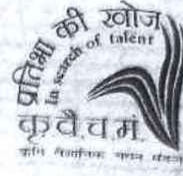 प्रतिभा की खोज
In search of talent
कृ.वै.च.मं.
कृषि वैज्ञानिक चयन मंडल